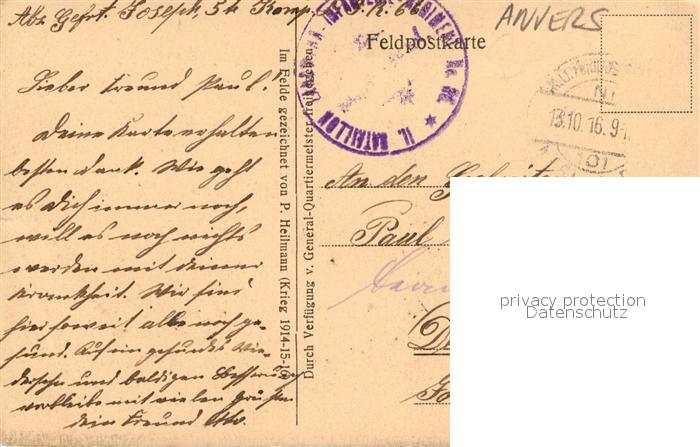 Abs. Gefrt. Joseph, 5te Komp. I.R. 66
ANVERS
Feldpostkarte
II. BATAILLON
13.10.16. 9-1
Lieber Freund Paul!
Deine Karte erhalten
besten Dank. Wie geht
es Dich immer noch,
will es noch nichts
werden mit deiner
Krankheit. Wir sind
hier soweit alle noch ge-
sund. Auf ein gesundes Wie-
dersehn und baldigen Besserung
verbleibe mit vielen Grüßen
dein Freund Otto.
Im Felde gezeichnet von P. Heilmann (Krieg 1914-15-16)
Durch Verfügung v. General-Quartiermeister freigegeben
An den
Paul
privacy protection
Datenschutz